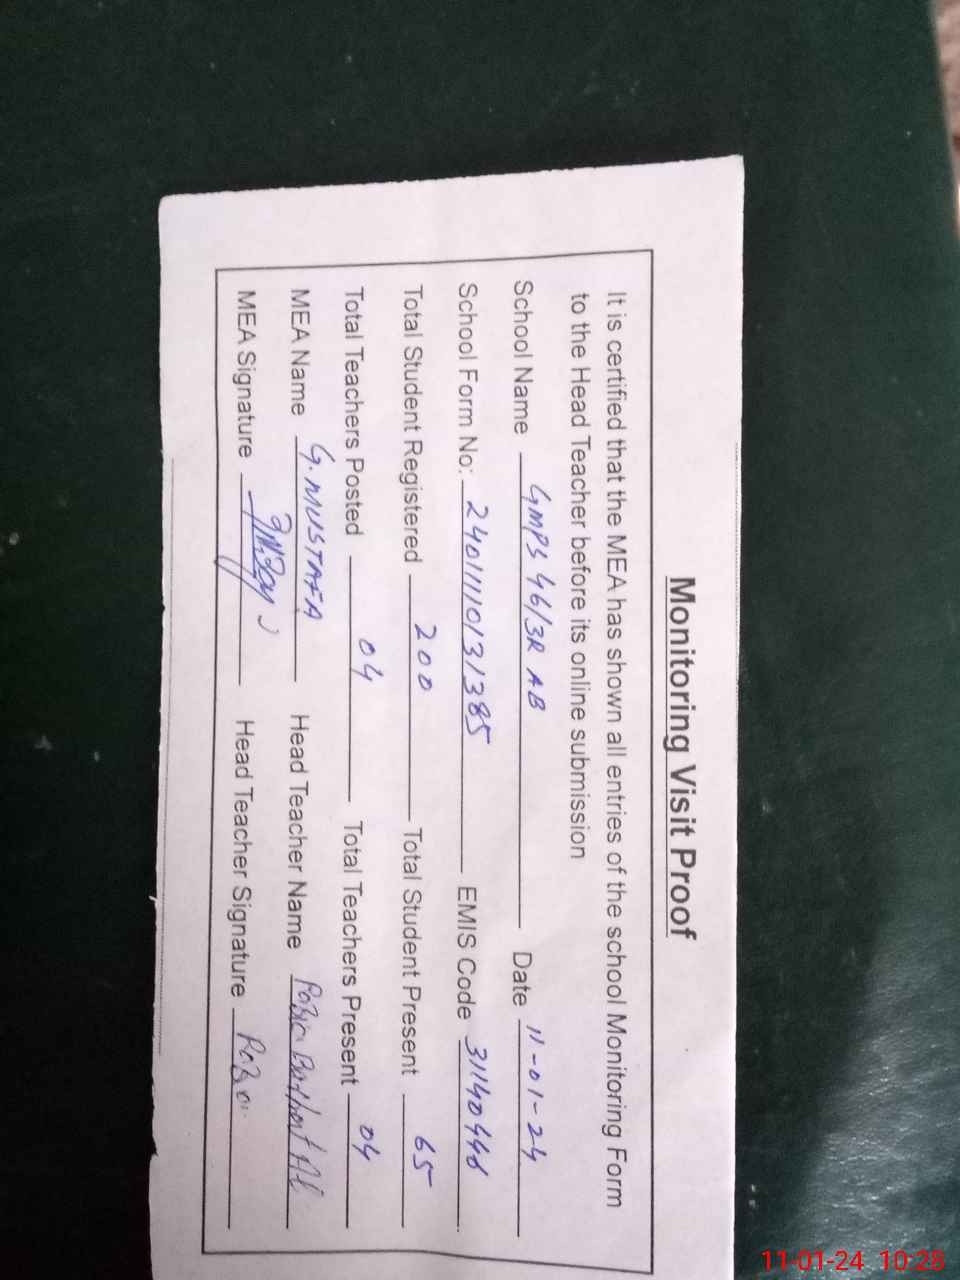 Monitoring Visit Proof
It is certified that the MEA has shown all entries of the school Monitoring Form
to the Head Teacher before its online submission
School Name GMPS 46/3R AB Date 11-01-24
School Form No: 2401111013 1385 EMIS Code 31140446
Total Student Registered 200 Total Student Present 65
Total Teachers Posted 04 Total Teachers Present 04
MEA Name G.MUSTAFA Head Teacher Name
MEA Signature Head Teacher Signature
11-01-24 10:28